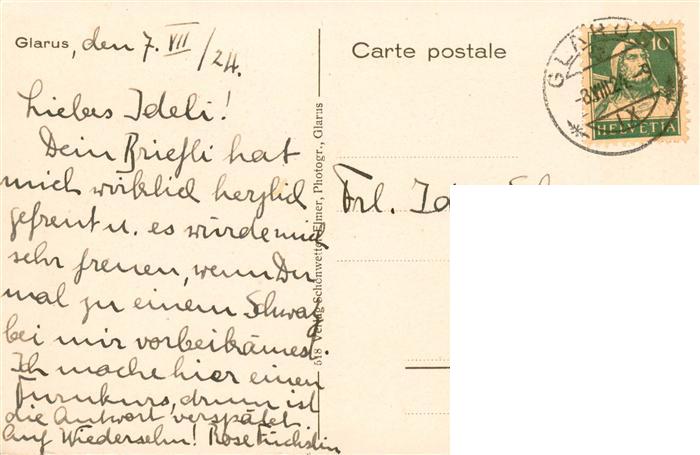 Glarus, den 7. VII / 24.
Liebes Ideli!
Dein Briefli hat
mich wirklich herzlich
gefreut u. es würde mich
sehr freuen, wenn Du
mal zu einem Schwatz
bei mir vorbeikämest.
Ich mache hier einen
Turnkurs, drum ist
die Antwort verspätet.
Auf Wiedersehn! Rose Füchslin
518 Verlag Schönwetter-Elmer, Photogr., Glarus
Carte postale
GLARUS
-8.VIII.24
10
HELVETIA
Frl. Ida